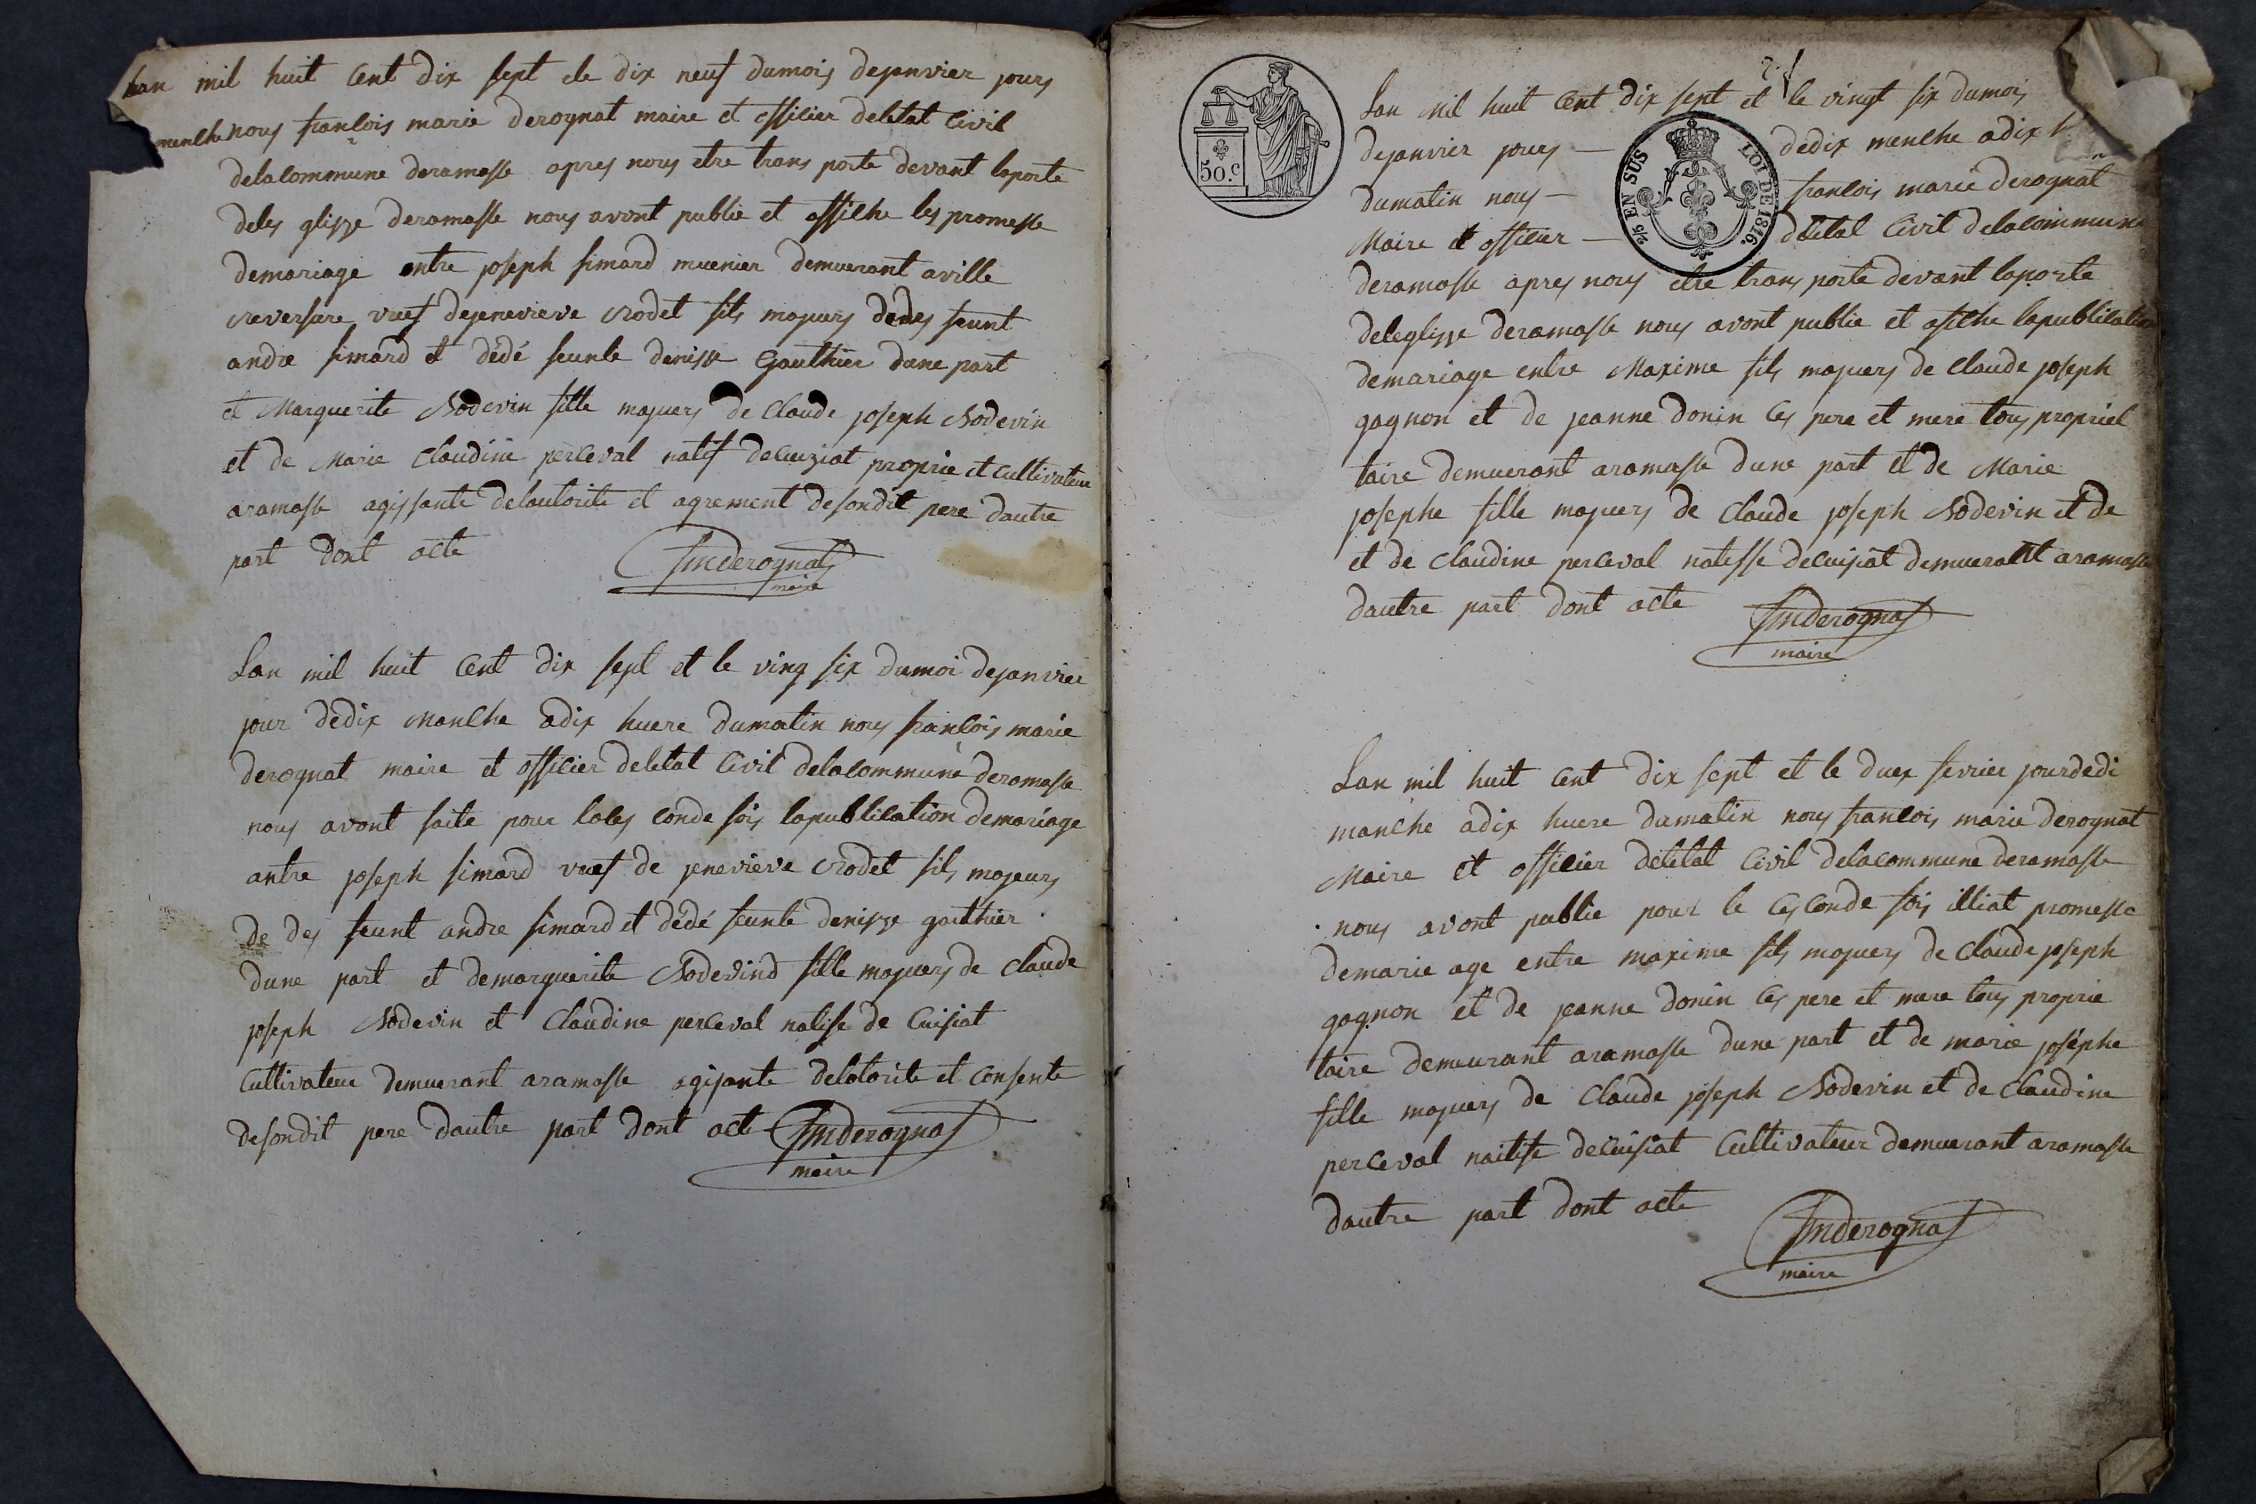 Lan mil huit Cent dix sept ele dix neuf dumois dejanvier jours
menche nous francois marie derognat maire et officier deletat Civil
delacommune deramasse apres nous etre trans porte devant laporte
deles glisze deramasse nous avont publie et affiche les promesse
demariage entre joseph simard muenier demuerant aville
reversure vuef dejenevieve Rodet fils majuers dedes feunt
andre simard et dédé feunte denisse Gaulthier dune part
et Marguerite Bodevin fille majuers de Claude joseph Bodevin
et de Marie Claudine perceval natif decuiziat proprie et cultivateur
aramasse agissante delautorite et agrement desondit pere dautre
part dont acte
fmderognat
maire
Lan mil huit Cent dix sept et le ving six dumoi dejanvier
jour dedix manche adix huere dumatin nous francois marie
derognat maire et officier deletat Civil delacommune deramasse
nous avont faite pour lales conde fois lapublication demariage
antre joseph simard vuef de jenevieve Rodet fils majeurs
de des feunt andre simard et dédé feunte denisze gauthier
dune part et demarguerite Bodevind fille majuers de Claude
joseph Bodevin et Claudine perceval natise de Cuisiat
Cultivateur demuerant aramasse agisante delotorite et consente
desondit pere dautre part dont acte fmderognat
maire
50.C
2/5 EN SUS LOI DE 1816.
Lan mil huit Cent dix sept et le vingt six dumois
dejanvier jours dedix menche adix
dumatin nous francois marie derognat
Maire et officier deletat Civil delacommune
deramasse apres nous etre trans porte devant laporte
deleglisze deramasse nous avont publie et afiche lapublication
demariage entre Maxime fils majuers de Claude joseph
gagnon et de jeanne donin Ces pere et mere tous propriet
taire demuerant aramasse dune part et de Marie
josephe fille majuers de Claude joseph Bodevin et de
et de Claudine perceval natesse decuisiat demuerant aramasse
dautre part dont acte
fmderognat
maire
Lan mil huit Cent dix sept et le duex fevrier jourdedi
manche adix huere dumatin nous francois marie derognat
Maire et officier deletat Civil delacommune deramasse
nous avont publie pour le Cesconde fois illiat promesse
demarie age entre maxime fils majuers de Claude joseph
gagnon et de jeanne donin Ces pere et mere tous proprie
taire demeurant aramasse dune part et de marie josephe
fille majuers de Claude joseph Bodevin et de Claudine
perceval naitise decuisiat Cultivateur demuerant aramasse
dautre part dont acte
fmderognat
maire